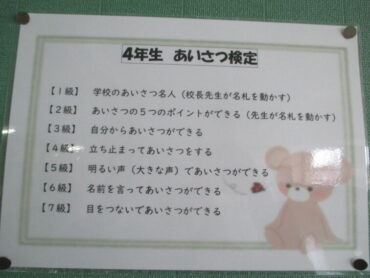 4年生 あいさつ検定
【１級】 学校のあいさつ名人（校長先生が名札を動かす）
【２級】 あいさつの５つのポイントができる（先生が名札を動かす）
【３級】 自分からあいさつができる
【４級】 立ち止まってあいさつをする
【５級】 明るい声（大きな声）であいさつができる
【６級】 名前を言ってあいさつができる
【７級】 目をつないであいさつができる